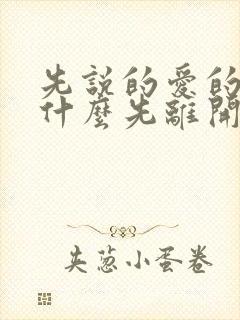 先說的愛的
什麼先離開
夾蔥小蛋卷